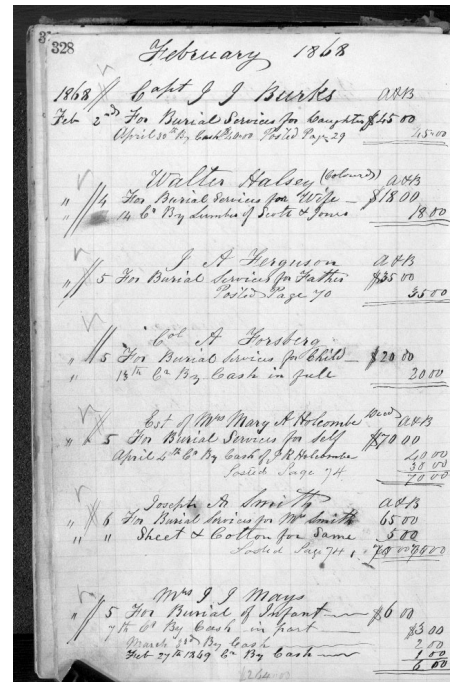 328
February 1868
1868 Capt J J Burks A&B
Feb 2nd For Burial Services for Daughter $45 00
April 30th By Cash 40.00 Posted Page 29 45.00
Walter Halsey (Coloured) A&B
" 4 For Burial Services for Wife — $18.00
" 14 Cr By Lumber of Scott & Jones 18.00
J A Ferguson A&B
" 5 For Burial Services for Father $35 00
Posted Page 70 35 00
Col A Forsberg
" 5 For Burial Services for Child — $20 00
" 13th Cr By Cash in full 20.00
Est of Mrs Mary A Holcombe Decd A&B
" 5 For Burial Services for Self $70 00
April 4th Cr By Cash of J R Holcombe 40 00
Posted Page 74 30 00
70 00
Joseph A Smith A&B
" 6 For Burial Services for Mr Smith 65 00
" " Sheet & Cotton for Same 5 00
Posted Page 74
Mrs J J Mays
" 5 For Burial of Infant — $6 00
7th Cr By Cash in part — $3 00
March 2nd By Cash — 2 00
Feb 27th 1869 Cr By Cash — 1 00
6 00